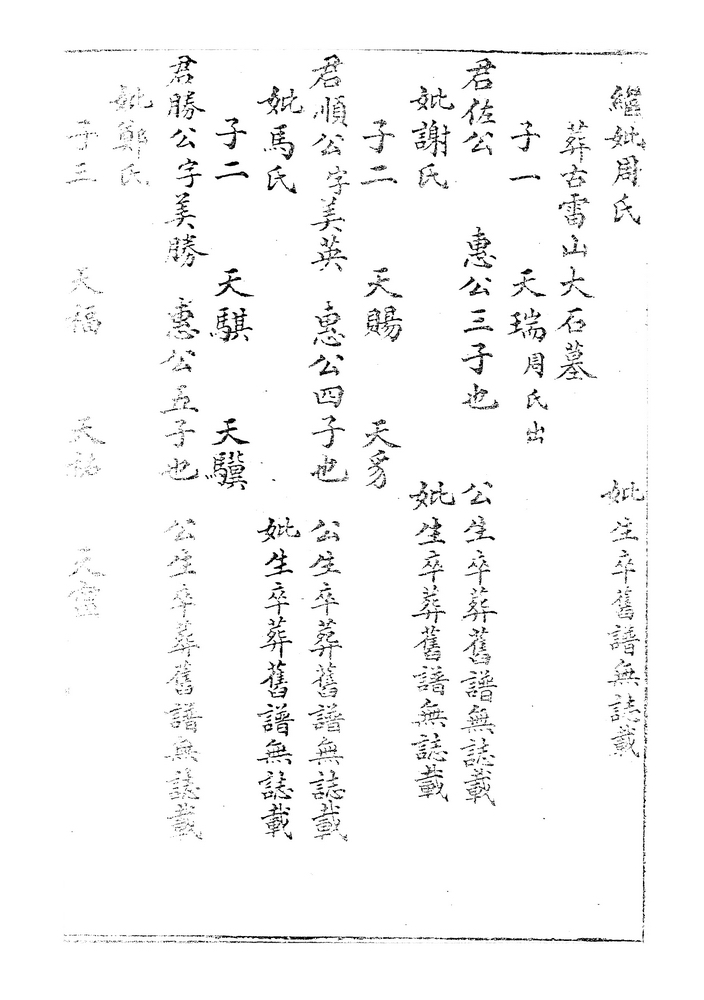 繼妣周氏 妣生卒舊譜無誌載
葬古雷山大石墓
子一 天瑞周氏出
君佐公 惠公三子也 公生卒葬舊譜無誌載
妣謝氏 妣生卒葬舊譜無誌載
子二 天賜 天豸
君順公字美英 惠公四子也 公生卒葬舊譜無誌載
妣馬氏 妣生卒葬舊譜無誌載
子二 天騏 天驥
君勝公字美勝 惠公五子也 公生卒葬舊譜無誌載
妣鄭氏
子三 天福 天祐 天靈